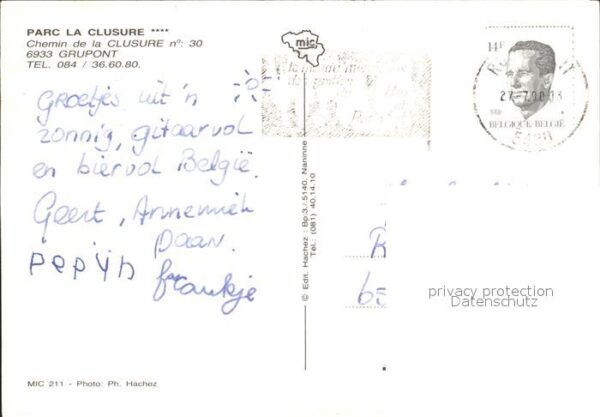 PARC LA CLUSURE ****
Chemin de la CLUSURE n°: 30
6933 GRUPONT
TEL. 084 / 36.60.80.
mic
14F
27-7.90
5420
BELGIQUE-BELGIË
Groetjes uit 'n
zonnig, gitaarvol
en biervol België.
Geert, Annemiek
Daan.
PEPIJN
frankje
© Edit. Hachez : Bp:3./5140. Naninne
Tel.: (081) 40.14.10
R
65
privacy protection
Datenschutz
MIC 211 - Photo: Ph. Hachez